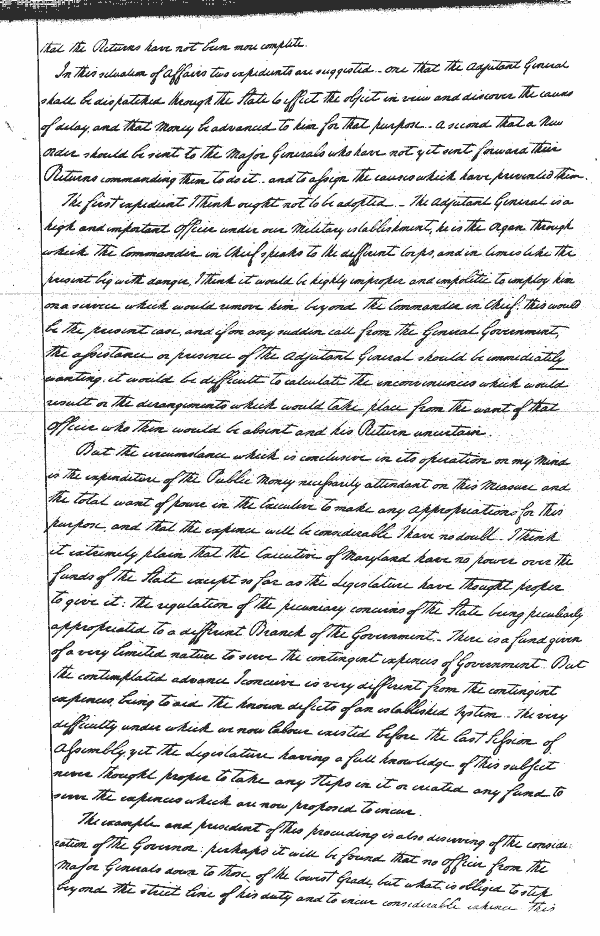 that the Returns have not been more complete.
In this situation of Affairs two expedients are suggested - one that the Adjutant General
shall be dispatched through the State to effect the object in view and discover the cause
of delay, and that Money be advanced to him for that purpose - a second that a New
order should be sent to the Major Generals who have not yet sent forward their
Returns commanding them to do it - and to assign the causes which have prevented them.
The first expedient I think ought not to be adopted - The Adjutant General is a
high and important Officer under our Military establishment, he is the organ through
which the Commander in Chief speaks to the different Corps, and in times like the
present big with danger, I think it would be highly improper and impolitic to employ him
on a service which would remove him beyond the Commander in Chief: this would
be the present case, and if on any sudden call from the General Government,
the assistance or presence of the Adjutant General should be immediately
wanting, it would be difficult to calculate the inconveniences which would
result or the derangements which would take place from the want of that
Officer who then would be absent and his Return uncertain.
But the circumstance which is conclusive in its operation on my Mind
is the expenditure of the Public Money necessarily attendant on this Measure and
the total want of power in the Executive to make any appropriations for this
purpose, and that the expence will be considerable I have no doubt - I think
it extremely plain that the Executive of Maryland have no power over the
funds of the State except so far as the Legislature have thought proper
to give it: the regulation of the pecuniary concerns of the State being peculiarly
appropriated to a different Branch of the Government - There is a fund given
of a very limited nature to serve the contingent expences of Government - But
the contemplated advance I conceive is very different from the contingent
expences, being to aid the known defects of an established system - The very
difficulty under which we now labour existed before the last Session of
Assembly, yet the Legislature having a full knowledge of this subject
never thought proper to take any steps in it or created any fund to
serve the expences which are now proposed to incur.
The example and president of this proceeding is also deserving of the conside:
ration of the Governor: perhaps it will be found that no officer from the
Major Generals down to those of the lowest Grade, but what is obliged to step
beyond the strict line of his duty and to incur considerable expence this